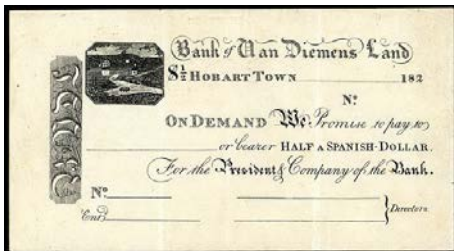 Bank of Van Diemens Land
$½ HOBART TOWN 182
No.
ON DEMAND We Promise to pay to
or bearer HALF A SPANISH-DOLLAR.
For the President & Company of the Bank.
No.
Entd.
Directors